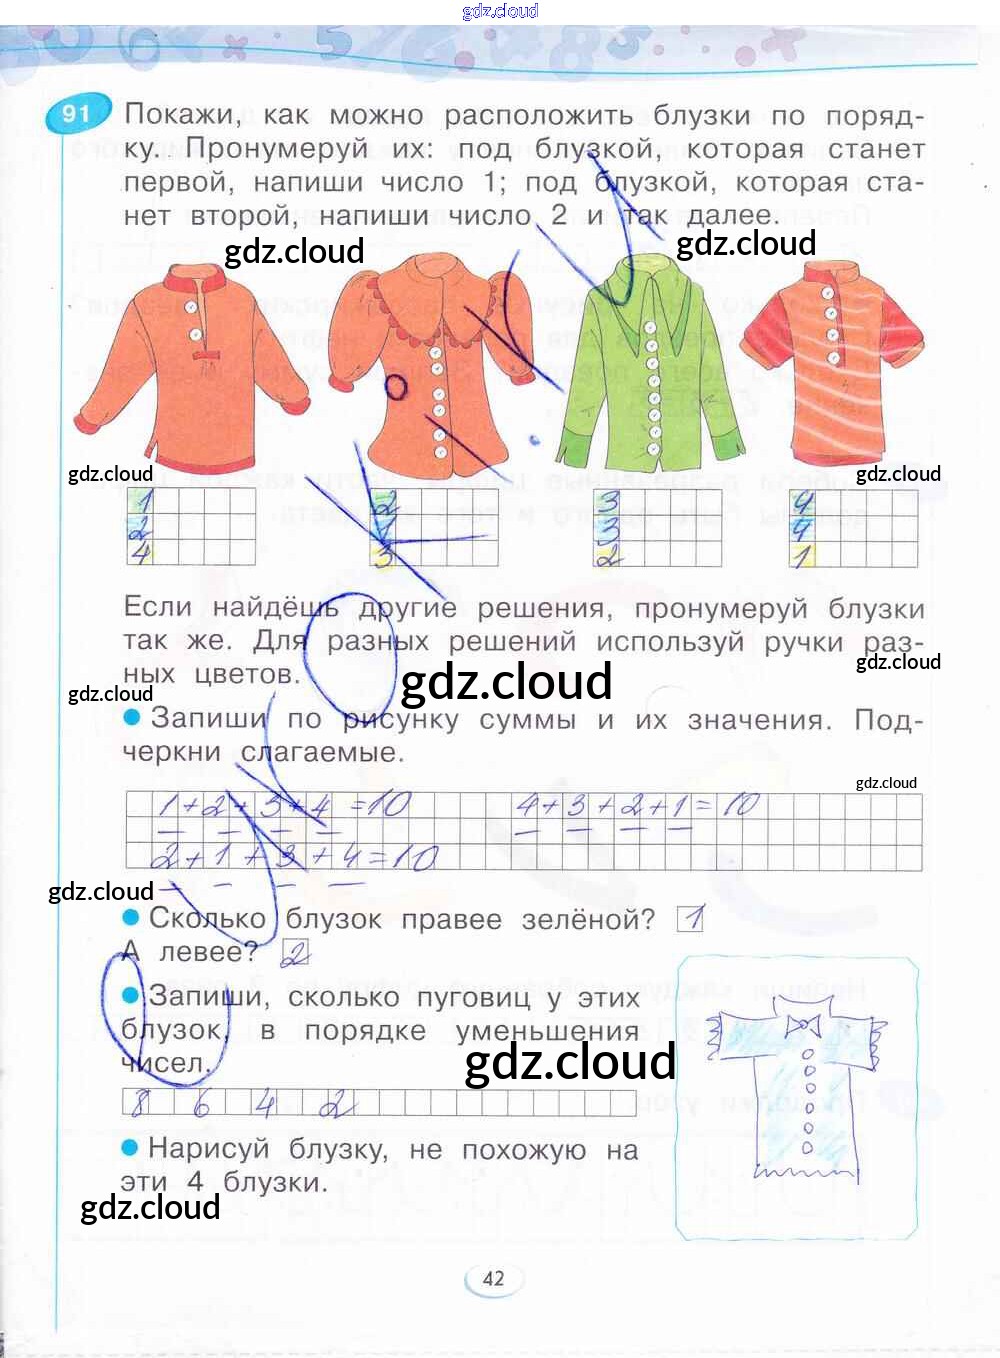 gdz.cloud
91 Покажи, как можно расположить блузки по поряд-
ку. Пронумеруй их: под блузкой, которая станет
первой, напиши число 1; под блузкой, которая ста-
нет второй, напиши число 2 и так далее.
gdz.cloud gdz.cloud
gdz.cloud gdz.cloud
1 2 3 4
2 1 3 4
4 3 2 1
Если найдёшь другие решения, пронумеруй блузки
так же. Для разных решений используй ручки раз-
gdz.cloud
ных цветов.
gdz.cloud gdz.cloud
Запиши по рисунку суммы и их значения. Под-
черкни слагаемые.
gdz.cloud
1+2+3+4=10 4+3+2+1=10
2+1+3+4=10
gdz.cloud
Сколько блузок правее зелёной? 1
А левее? 2
Запиши, сколько пуговиц у этих
блузок, в порядке уменьшения
чисел.
gdz.cloud
8 6 4 2
Нарисуй блузку, не похожую на
эти 4 блузки.
gdz.cloud
42